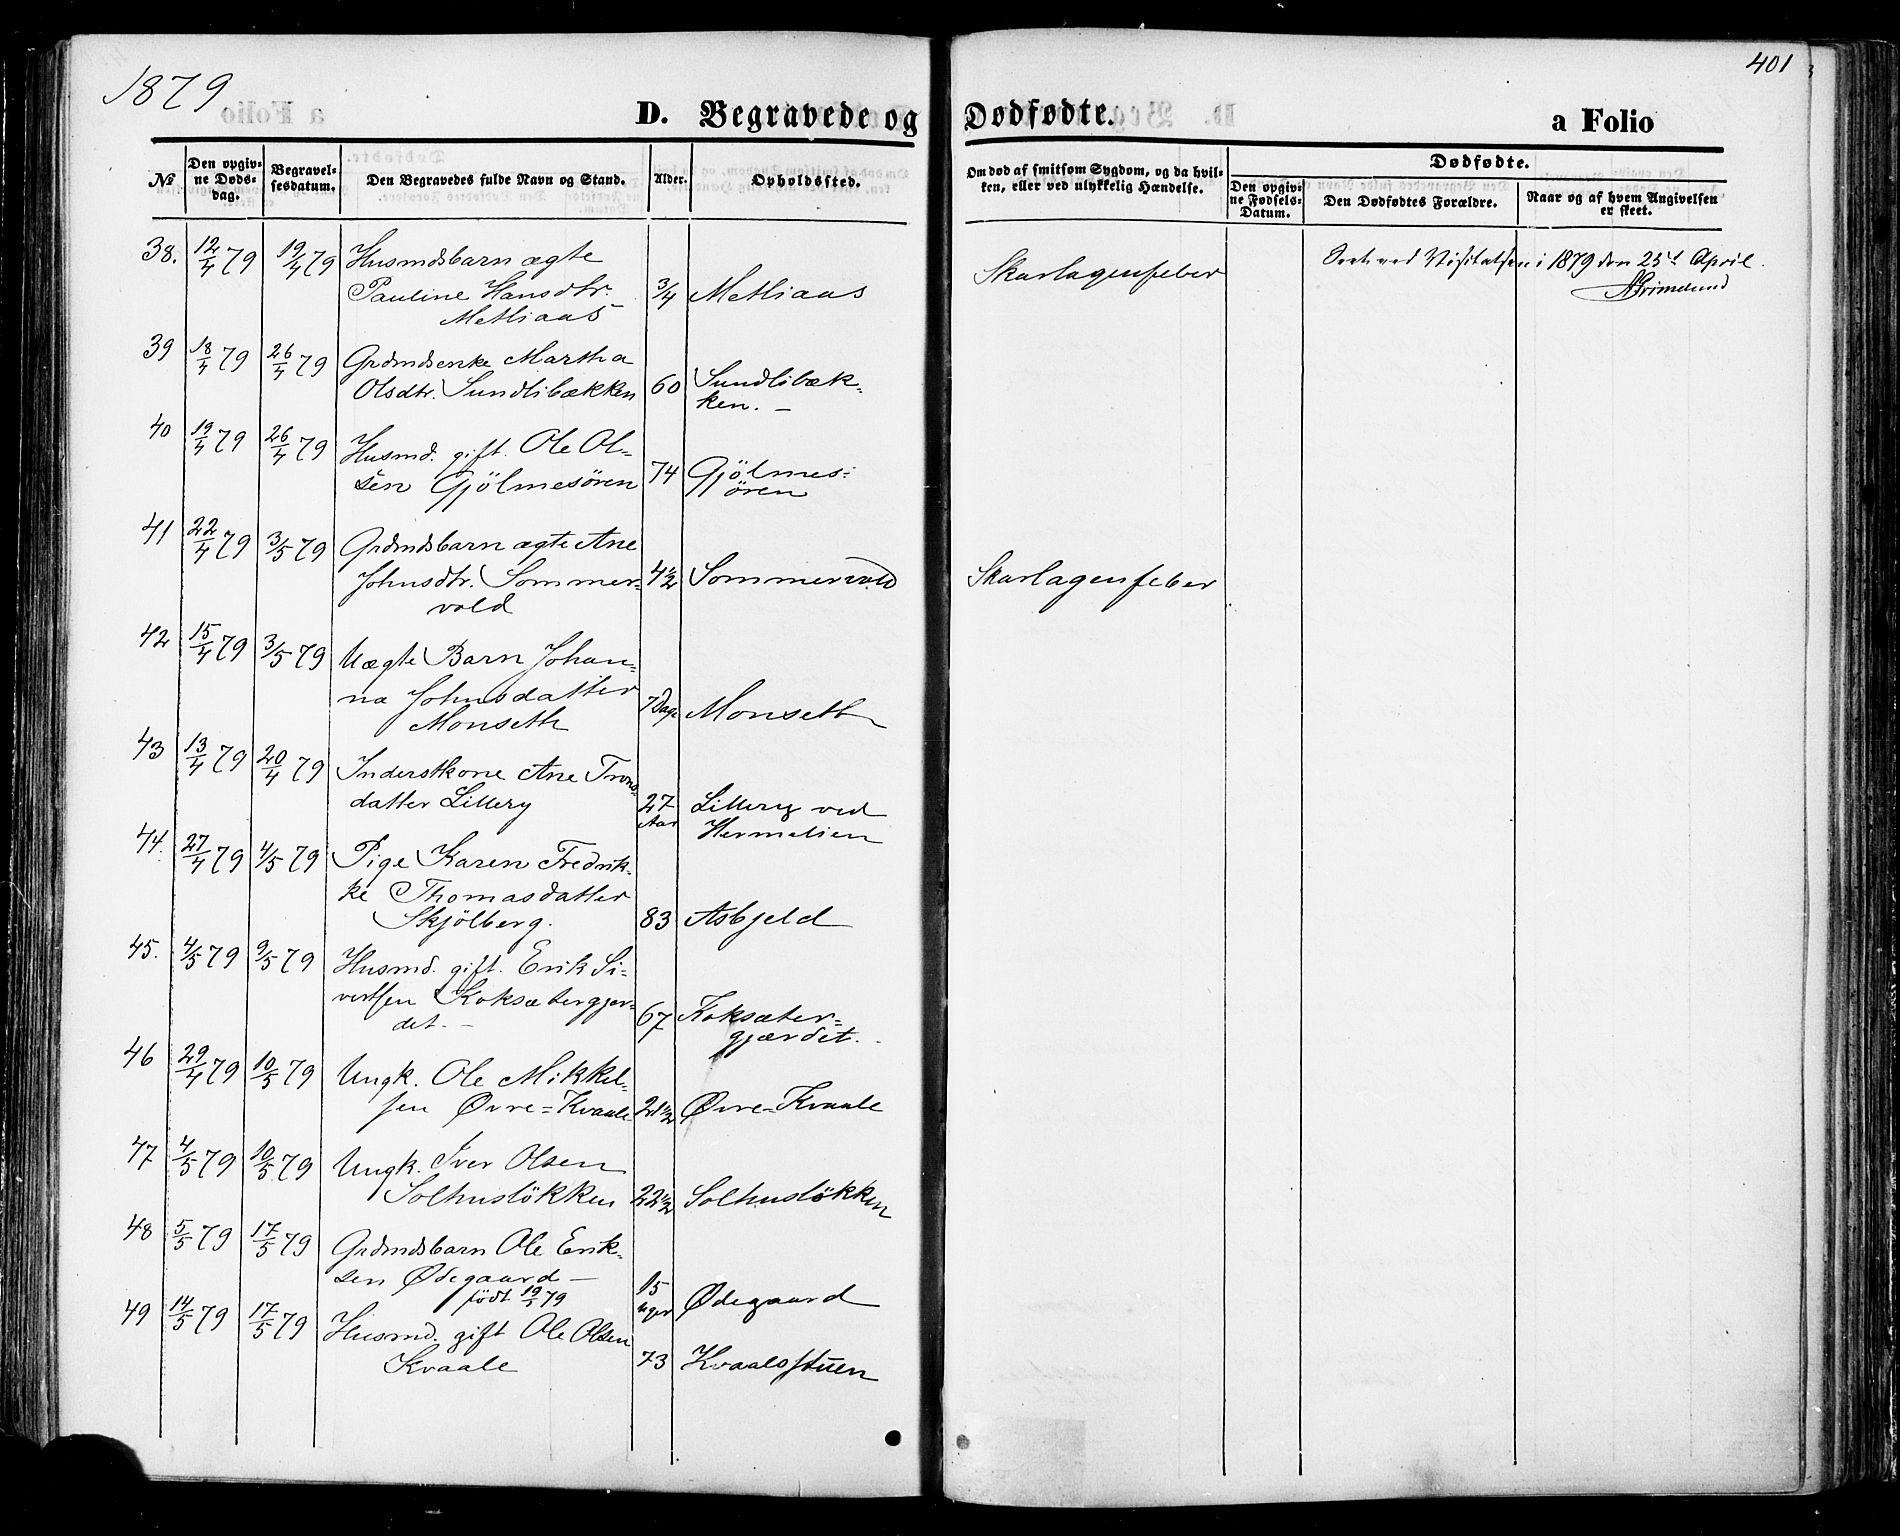 1879
401
D. Begravede og Dødfødte.
a Folio
№
Den opgivne Dødsdag.
Begravelsesdatum.
Den Begravedes fulde Navn og Stand.
Alder.
Opholdssted.
Om død af smitsom Sygdom, og da hvilken, eller ved ulykkelig Hændelse.
Dødfødte.
Den opgivne Fødsels-Datum.
Den Dødfødtes Forældre.
Naar og af hvem Angivelsen er skeet.
38. 12/4 79 19/4 79 Husmdsbarn ægte
Pauline Hansdtr. 3/4 Metliaas Skarlagenfeber
Metliaas
Seet ved Visitatsen i 1879 den 25de April.
AGrimelund
39 18/4 79 26/4 79 Grdmdsenke Martha
Olsdtr. Sundlibækken 60 Sundlibæk-
ken. –
40 19/4 79 26/4 79 Husmd. gift. Ole Ol-
sen Gjölmesören 74 Gjölmes-
ören
41 22/4 79 3/5 79 Grdmdsbarn ægte Ane
Johnsdtr. Sommer- 4½ Sommervold Skarlagensfeber
vold
42 15/4 79 3/5 79 Uægte Barn Johan-
na Johnsdatter 7 Dage Monseth
Monseth
43 13/4 79 20/4 79 Inderstkone Ane Trons-
datter Lillery 27 Aar Lillery ved
Hermelien
44. 27/4 79 4/5 79 Pige Karen Fredrik-
ke Thomasdatter
Skjölberg. 83 Asbjeld
45. 4/5 79 9/5 79 Husmd. gift. Erik Si-
vertsen Koksætergjær- 67 Koksæter-
det. – gjærdet.
46 29/4 79 10/5 79 Ungk. Ole Mikkel-
sen Øvre-Kvaale 21½ Øvre-Kvaale
47 4/5 79 10/5 79 Ungk. Iver Olsen
Solhuslökken 22½ Solhuslökken
48 5/5 79 17/5 79 Grdmdsbarn Ole Erik-
sen Ødegaard – 15 Uger Ødegaard
født 19/1 79
49 14/5 79 17/5 79 Husmd. gift Ole Olsen
Kvaale 73 Kvaalsstuen